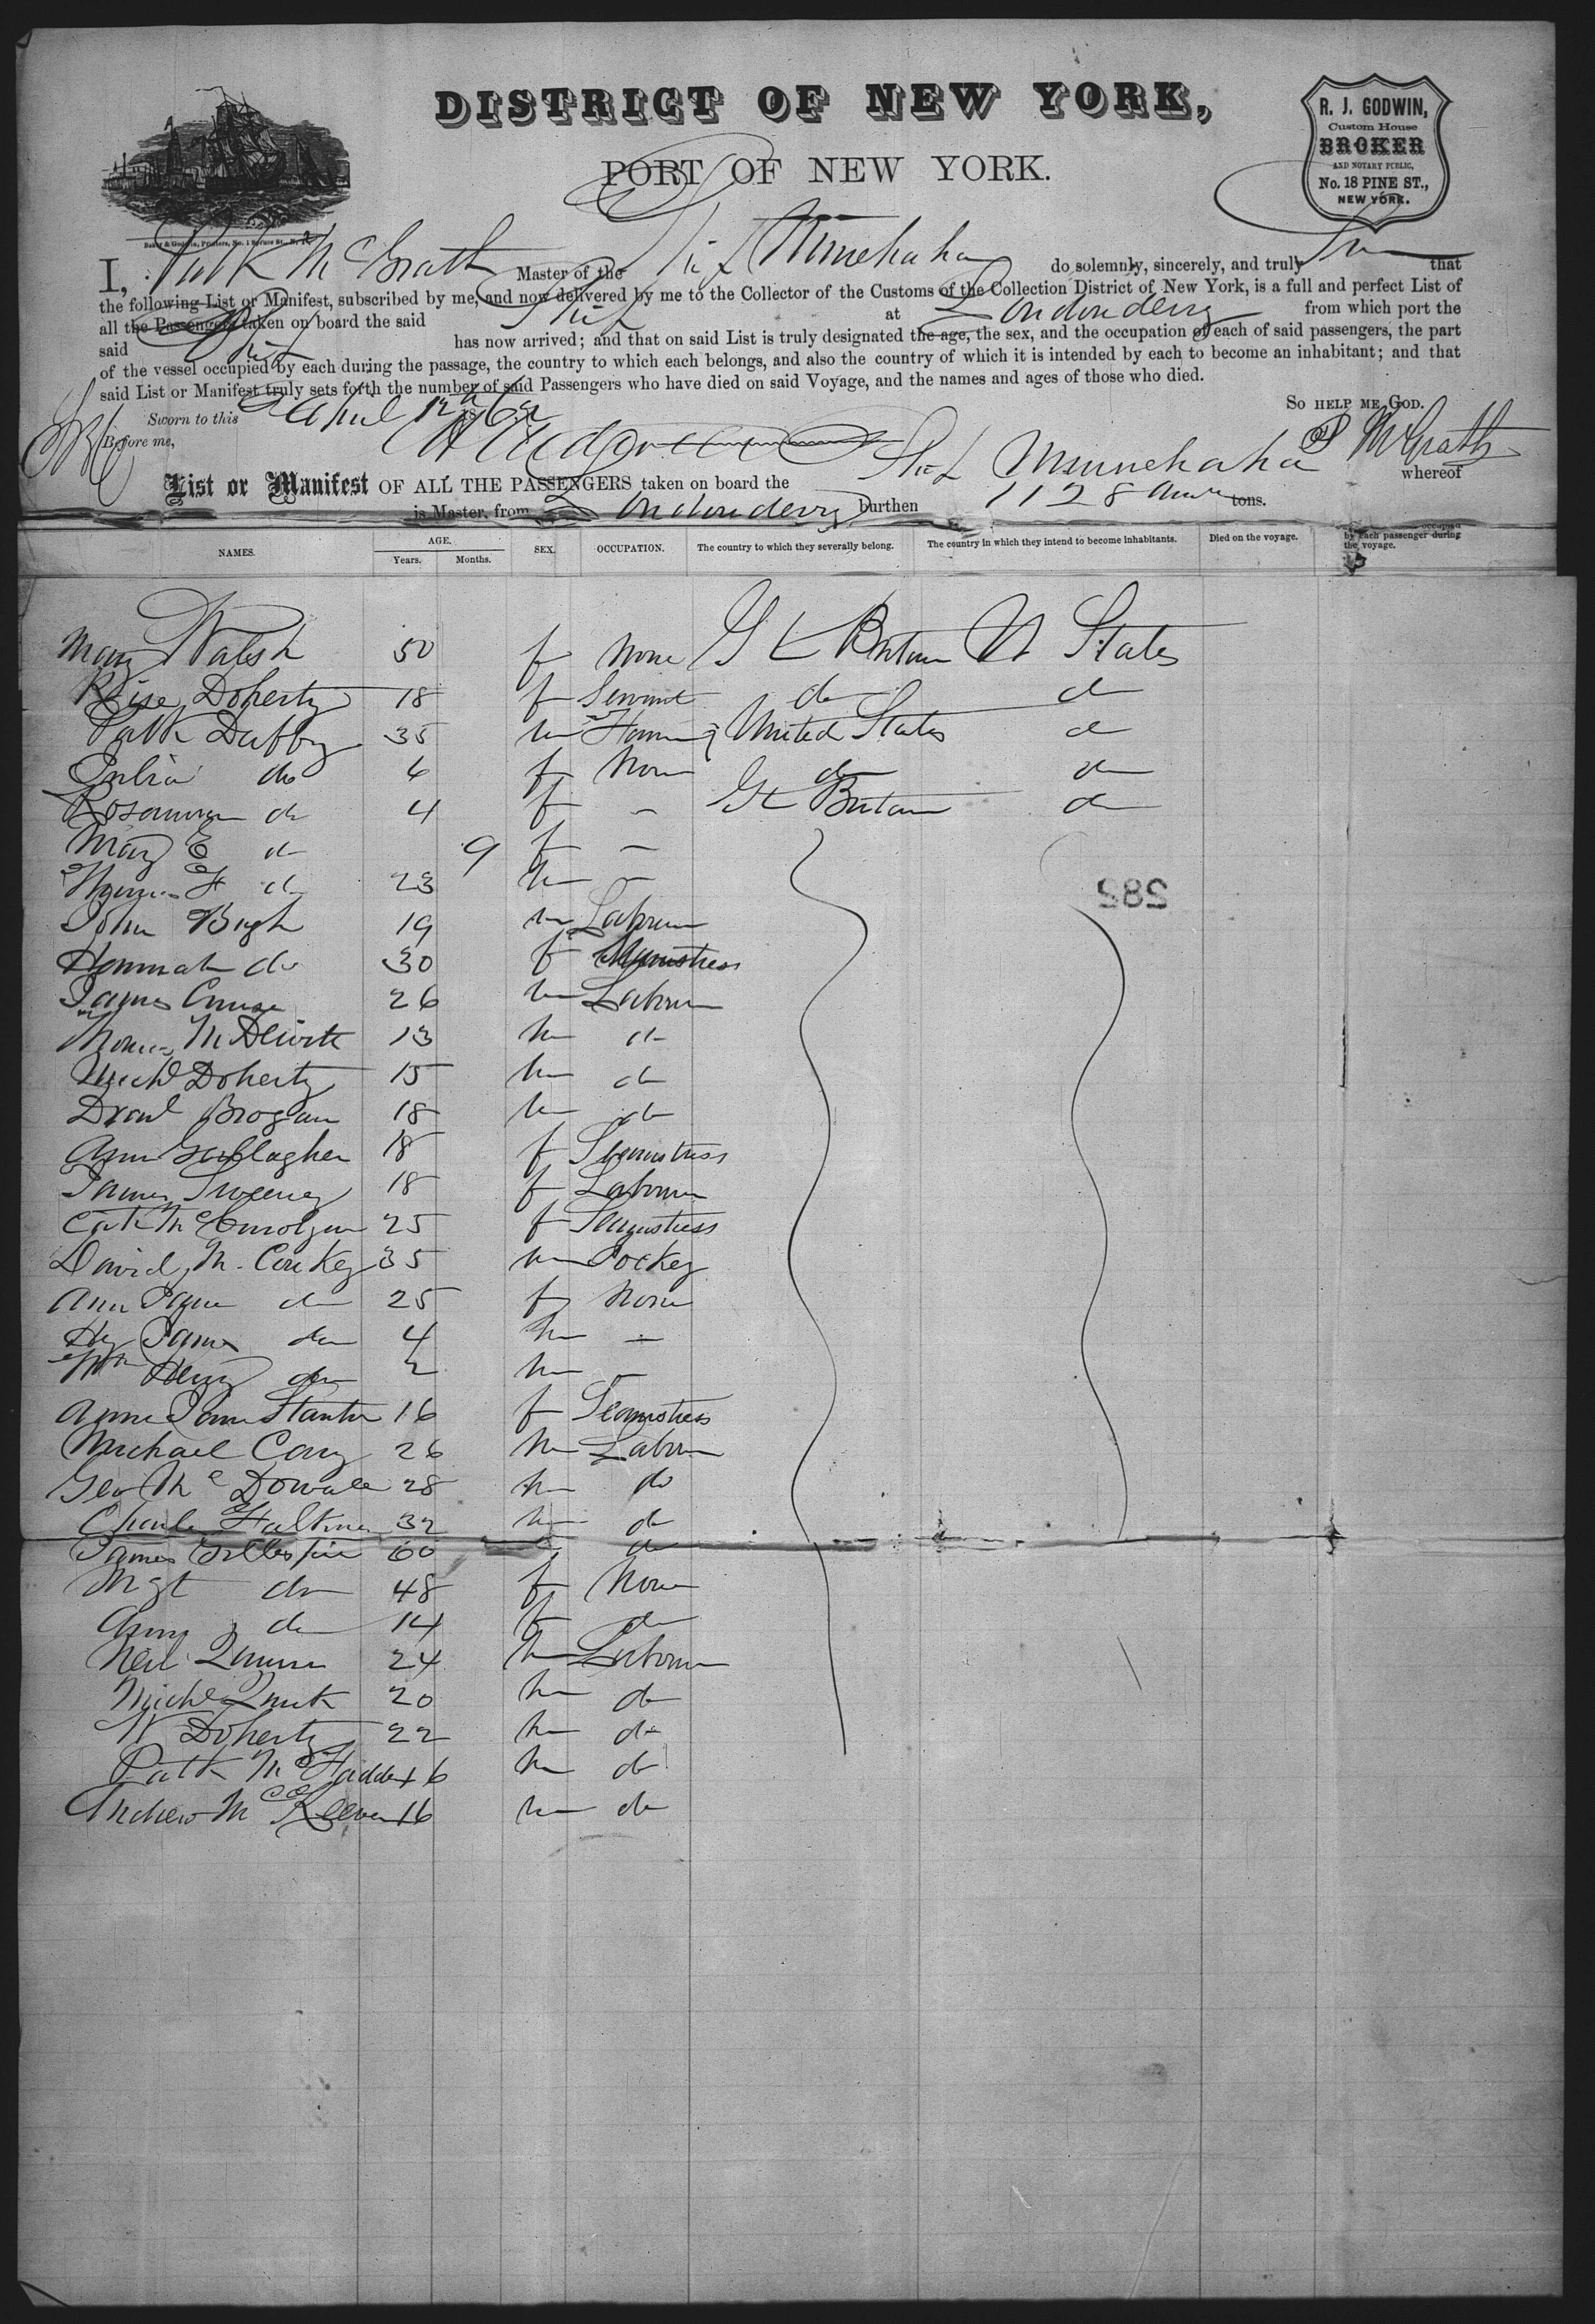 DISTRICT OF NEW YORK,
PORT OF NEW YORK.
R. J. GODWIN,
Custom House
BROKER
AND NOTARY PUBLIC,
No. 18 PINE ST.,
NEW YORK.
I, Patk McGrath Master of the Ship Minnehaha do solemnly, sincerely, and truly that
the following List or Manifest, subscribed by me, and now delivered by me to the Collector of the Customs of the Collection District of New York, is a full and perfect List of
all the Passengers taken on board the said Ship at Londonderry from which port the
said Ship has now arrived; and that on said List is truly designated the age, the sex, and the occupation of each of said passengers, the part
of the vessel occupied by each during the passage, the country to which each belongs, and also the country of which it is intended by each to become an inhabitant; and that
said List or Manifest truly sets forth the number of said Passengers who have died on said Voyage, and the names and ages of those who died.
SO HELP ME GOD.
Sworn to this April 12th
Before me,
P McGrath
List or Manifest OF ALL THE PASSENGERS taken on board the Ship Minnehaha whereof
is Master, from Londonderry burthen 1128 tons.
NAMES. AGE. Years. Months. SEX. OCCUPATION. The country to which they severally belong. The country in which they intend to become inhabitants. Died on the voyage. occupied by each passenger during the voyage.
Mary Walsh 50 f None Gt Britain U States
Rose Doherty 18 f Servant do do
Patk Duffy 35 m United States do
Julia do 6 f None do do
Rosanna do 4 f – Gt Britain do
Mary E do 9 f –
Thomas F do 23 m –
585
John Bugh 19 m Laborer
Hannah do 30 f Seamstress
James 26 m Laborer
Thomas 13 m do
Michl Doherty 15 m do
Danl Brogan 18 m do
Ann Gallagher 18 f Seamstress
James Sweeney 18 f Laborer
Cath 25 f Seamstress
David M. Conkey 35 m Jockey
Ann Jane do 25 f None
Hy James do 4 m –
Wm Henry do 2 m –
Anne Jane Stanton 16 f Seamstress
Michael 26 m Laborer
Geo McDowall 28 m do
Charles 32 m do
James Gillespie 60 do
Mgt do 48 f None
Ann do 14 f do
Neil Quinn 24 m Laborer
Michl 20 m do
W Doherty 22 m do
Patk McFadden 16 m do
Andrew Mc 16 m do